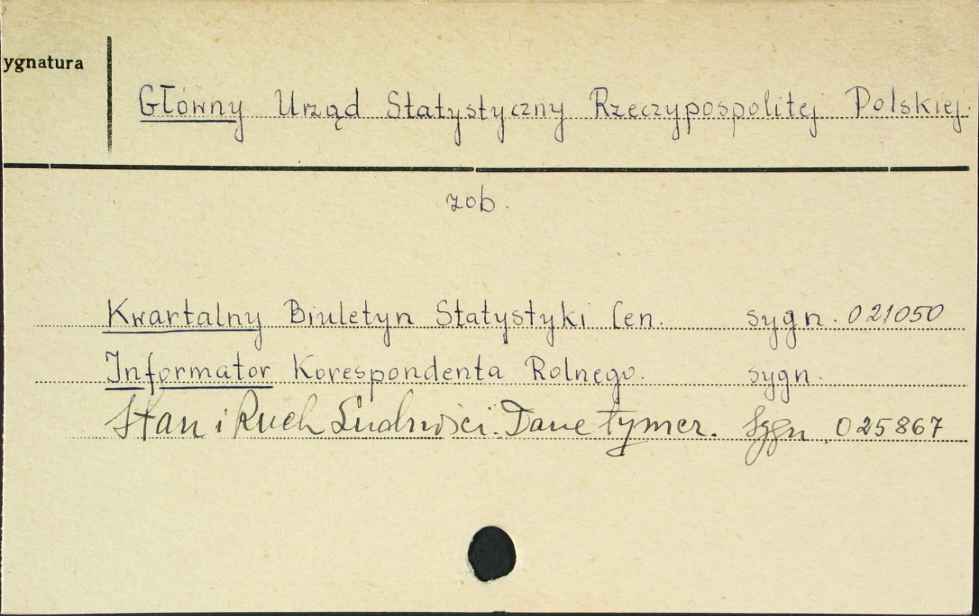 ygnatura
Główny Urząd Statystyczny Rzeczypospolitej Polskiej.
zob.
Kwartalny Biuletyn Statystyki Cen. sygn. 021050
Informator Korespondenta Rolnego. sygn.
Stan i Ruch Ludności. Dane tymcz. Sygn. 025867